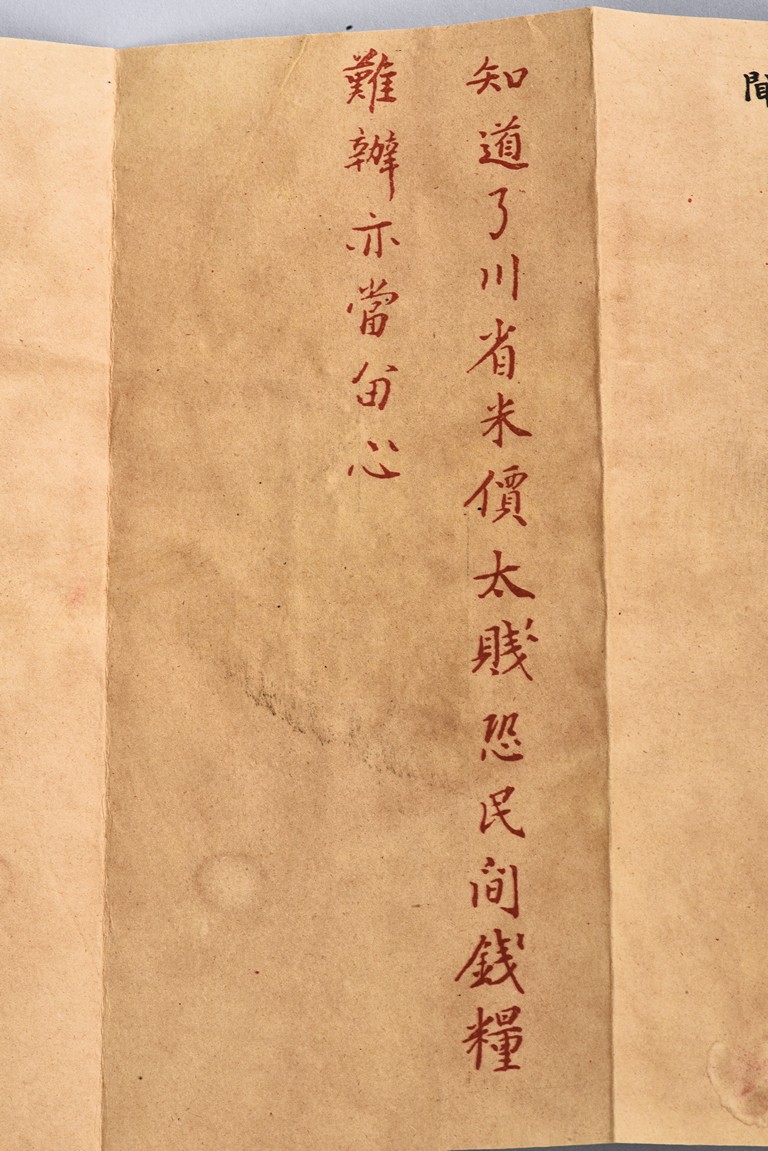 聞
知道了川省米價太賤恐民间錢糧
難辦亦當留心